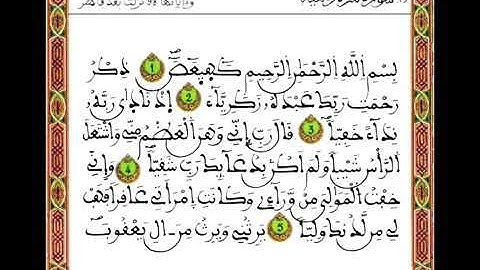 وءاياتها 98 نزلت بعد فاطر
بِسْمِ اللَّهِ الرَّحْمَٰنِ الرَّحِيمِ كَٓهيعَٓصَٓ 1 ذِكْرُ
رَحْمَتِ رَبِّكَ عَبْدَهُۥ زَكَرِيَّآءَ 2 اِذْ نَادٜىٰ رَبَّهُۥ
نِدَآءً خَفِيّاً 3 قَالَ رَبِّ إِنِّي وَهَنَ اَلْعَظْمُ مِنِّي وَاشْتَعَلَ
اَلرَّأْسُ شَيْباً وَلَمَ اَكُنۢ بِدُعَآئِكَ رَبِّ شَقِيّاً 4 وَإِنِّي
خِفْتُ اَلْمَوَٰلِيَ مِنْ وَّرَآءِي وَكَانَتِ اِمْرَأَتِي عَاقِراً فَهَبْ
لِي مِن لَّدُنكَ وَلِيّاً 5 يَرِثُنِي وَيَرِثُ مِنَ ـالِ يَعْقُوبَ